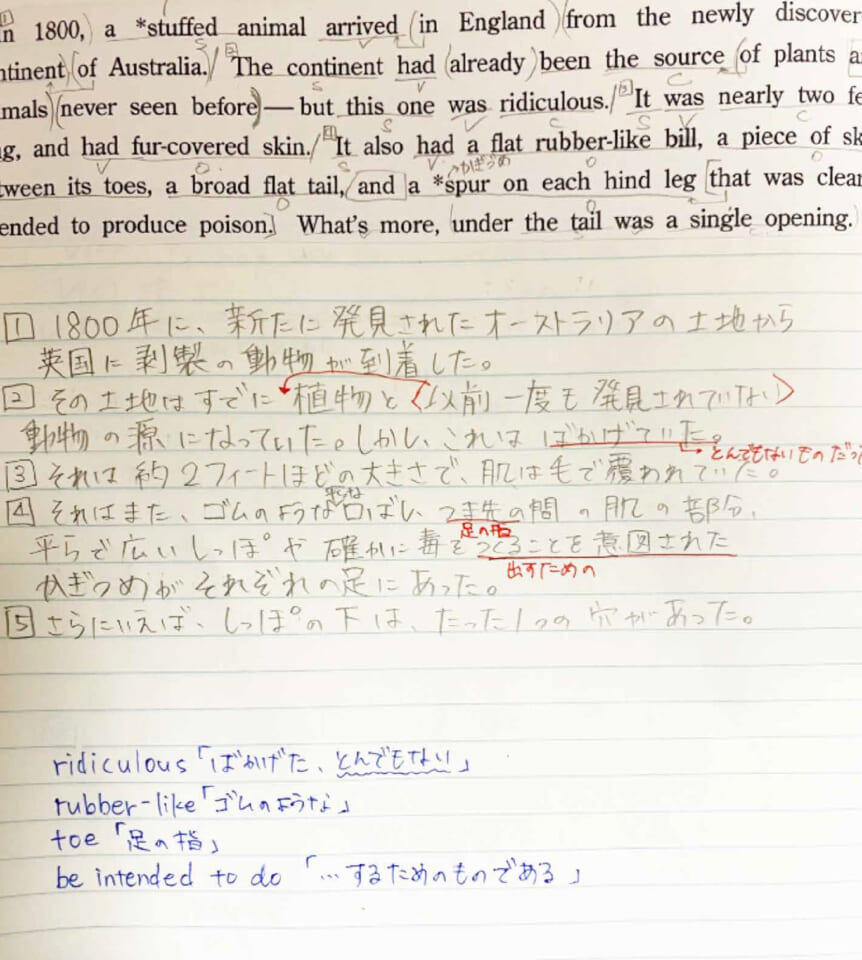 n 1800, a *stuffed animal arrived in England from the newly discover
ntinent of Australia. 2 The continent had already been the source of plants a
mals never seen before — but this one was ridiculous. 3 It was nearly two fe
g, and had fur-covered skin. 4 It also had a flat rubber-like bill, a piece of sk
かぎづめ
tween its toes, a broad flat tail, and a *spur on each hind leg that was clear
ended to produce poison. What's more, under the tail was a single opening.
1 1800年に、新たに発見されたオーストラリアの土地から
英国に剥製の動物が到着した。
2 その土地はすでに植物と〈以前一度も発見されていない〉
動物の源になっていた。しかし、これはばかげていた。
とんでもないものだっ
3 それは約2フィートほどの大きさで、肌は毛で覆われていた。
平らな
4 それはまた、ゴムのような口ばし、つま先の間の肌の部分、
足の指
平らで広いしっぽや確かに毒をつくることを意図された
出すための
かぎつめがそれぞれの足にあった。
5 さらにいえば、しっぽの下は、たった1つの穴があった。
ridiculous「ばかげた、とんでもない」
rubber-like「ゴムのような」
toe「足の指」
be intended to do「…するためのものである」